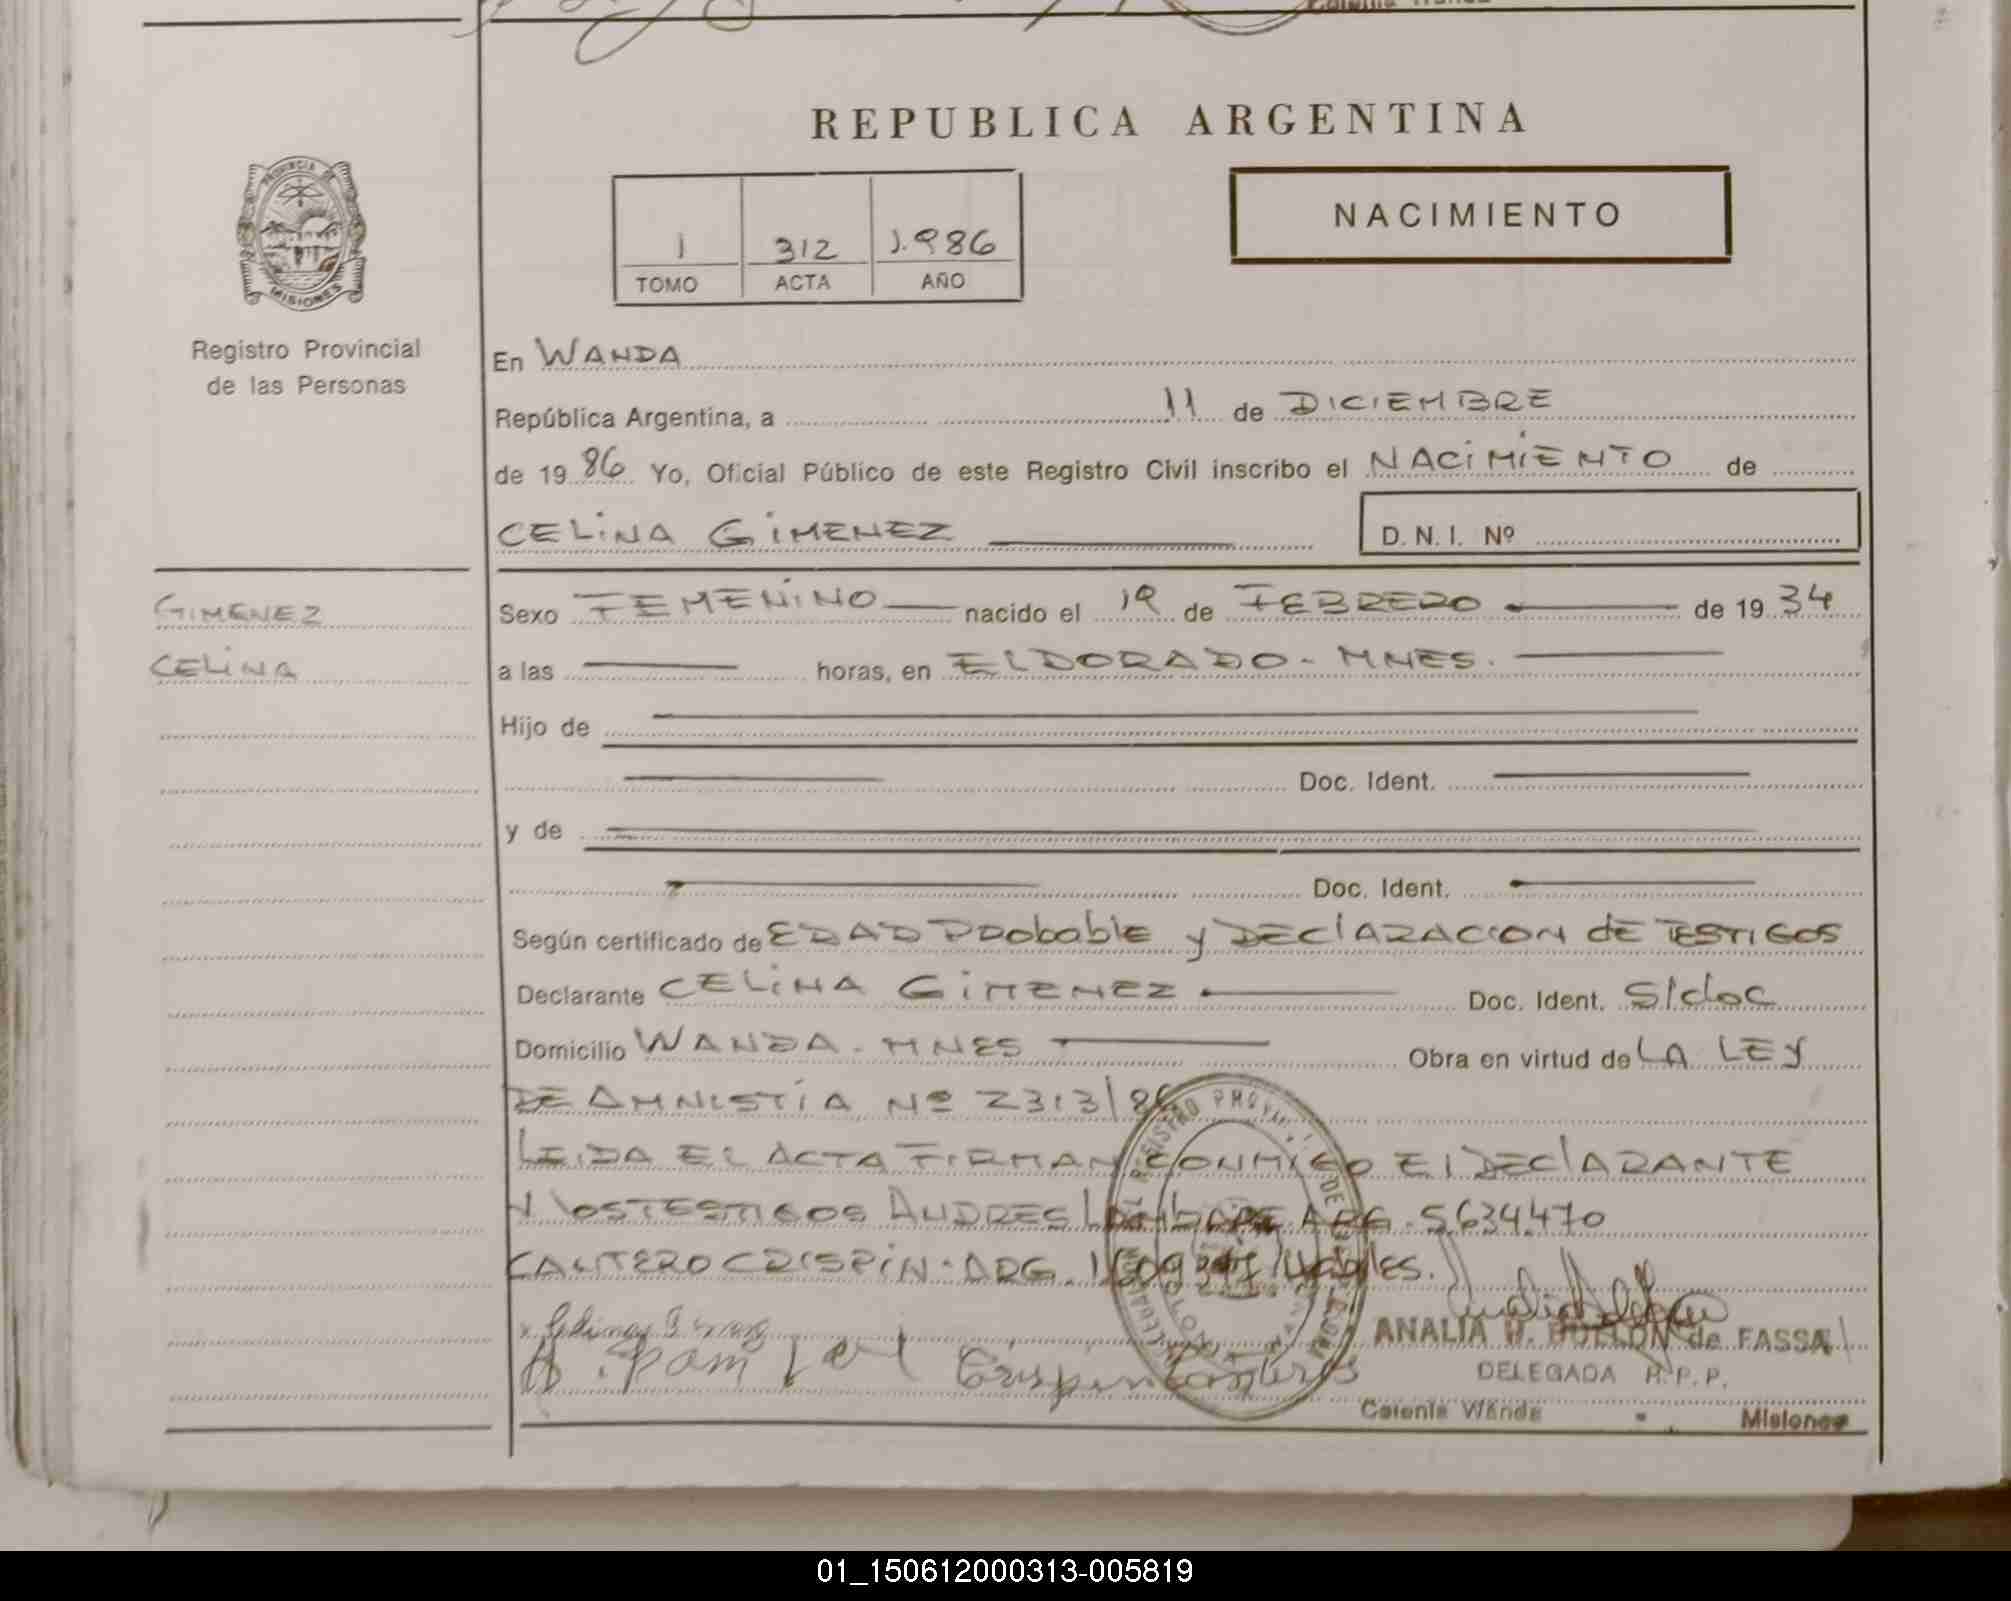 REPUBLICA ARGENTINA
NACIMIENTO
1 312 1.986
TOMO ACTA AÑO
PROVINCIA DE
MISIONES
Registro Provincial
de las Personas
En WANDA
República Argentina, a 11 de DICIEMBRE
de 19 86 Yo, Oficial Público de este Registro Civil inscribo el NACIMIENTO de
CELINA GIMENEZ
D. N. I. Nº
GIMENEZ
CELINA
Sexo FEMENINO nacido el 19 de FEBRERO de 19 34
a las horas, en ELDORADO - MNES.
Hijo de
Doc. Ident.
y de
Doc. Ident.
Según certificado de EDAD PRobable y DEClARACION dE TESTIGOS
Declarante CELINA GIMENEZ Doc. Ident. S/doc
Domicilio WANDA - MNES Obra en virtud de LA LEY
DE AMNISTÍA Nº 2313/86
LEIDA EL ACTA FIRMAN CONMIGO El DEClARANTE
Y lOS TESTIGOS ANDRES ARG. 5634470
CANTERO CRISPIN - ARG. Habiles.
ANALIA de FASSA
DELEGADA R.P.P.
Colonia Wanda Misiones
01_150612000313-005819